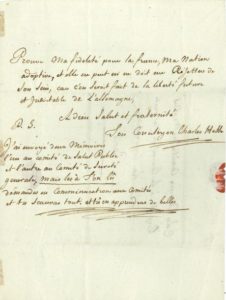 Prouve Ma fidelité pour la france, Ma Nation
adoptive, et elle ne peut ni ne doit me Rejetter de
Son Sein, car c'en Seroit fait de la liberté future
et inevitable de L'allemagne,
adieu Salut et fraternité
Ton Concitoyen Charles Hesse
P. S.
J'ai envoyé deux Memoires
l'un au comité de Salut Public
et l'autre au Comité de Sureté
generale, mais lis à Ton
demandes en Communication aux Comités
et tu Scauras tout, et tu en apprendras de belles